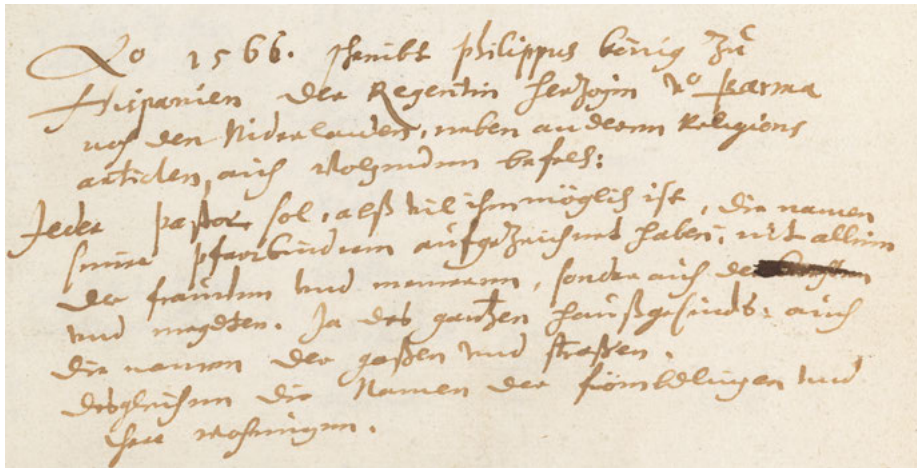 Ao 1566. schribt philippus König zů
Hispanien der Regentin hertzogin vo parma
uss den Niderlanden, neben anderen Religions
articlen, auch Volgenden befelch:
Jeder pastor sol, alß vil ihm möglich ist, die namen
seiner pfarrkinderen aufgezeichnet haben, nit allein
der frauwen und mannenn, sonder auch der
und mägden. Ja des gantzen haußgesinds: auch
die namen der gaßen und straßen.
desgleichen die Namen der frömbdlingen und
ihre wohnungen.